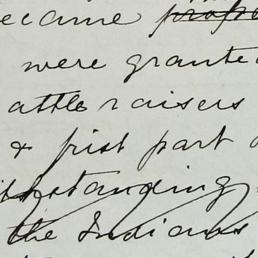 ecame
were grante
attle raisers
& first part
standing
the Indians